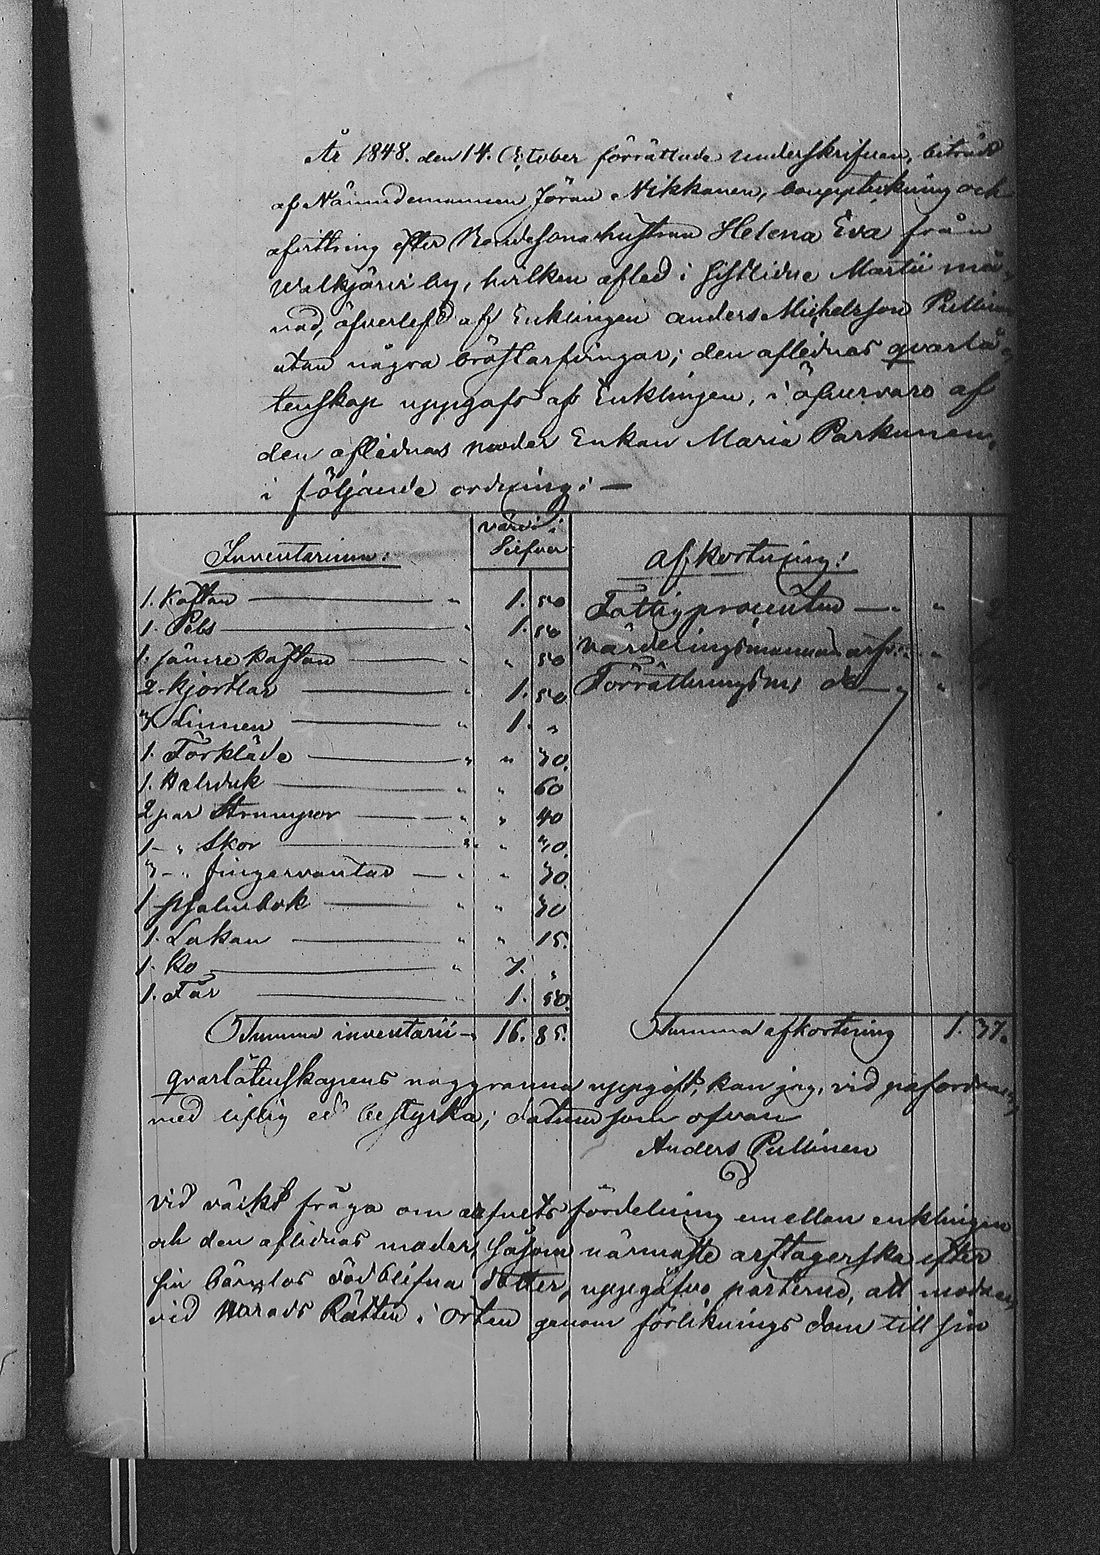 År 1848. den 14. October förrättade underskrifven, biträdd
af Nämndemannen Jöran Nikkanen, bouppteckning och
afvittring efter Bondesonahustrun Helena Eva från
Walkjärvi by, hvilken afled i sistlidne Martii må-
nad, öfverlefd af Enklingen Anders Michelsson Pullinen
utan några bröstarfvingar; den aflednas qvarlå-
tenskap uppgafs af Enklingen, i öfvervaro af
den aflednas moder Enkan Maria Parkunen,
i följande ordning: —
Inventarium: värdt i Silfver Afkortning:
1. Kaftan — " 1. 50 Fattigprocenten — " "
1. Pels — " 1. 50 Värderingsmannad arfv: " "
1. sämre Kaftan — " " 50 Förrättningsm: do — " "
2 Kjortlar — " 1. 50
3 Linnen — " 1. "
1. Förkläde — " " 30.
1. Halsduk — " " 60
2 par Strumpor — " " 40
1 — " Skor — " " 30.
3 — " fingervantar — " " 30.
1 psalmbok — " " 30
1. Lakan — " " 15.
1. Ko — " 7. "
1. Får — " 1. 50.
Summa inventarii — 16. 85. Summa afkortning 1. 37.
Qvarlåtenskapens noggranna uppgift, kan jag, vid påfordran,
med liflig ed bestyrka; datum som ofvan
Anders Pullinen
Vid väckt fråga om arfvets fördelning emellan enklingen
och den aflednas moder, såsom närmaste arftagerska efter
sin barnlös dödblifna dotter, uppgåfvo parterne, att modren
vid Härads Rätten i orten genom förliknings dom till sin